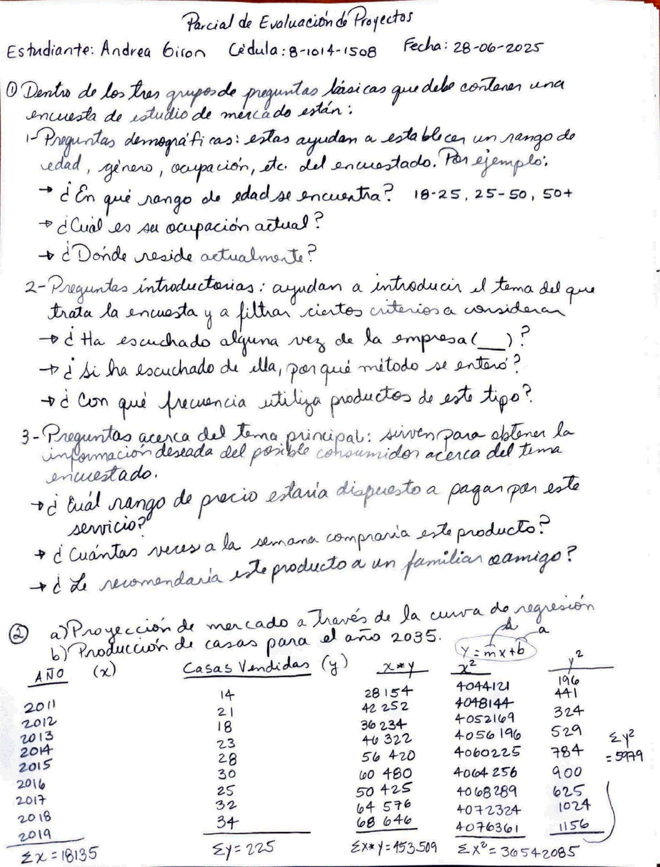 Parcial de Evaluación de Proyectos
Estudiante: Andrea Giron Cédula: 8-1014-1508 Fecha: 28-06-2025
① Dentro de los tres grupos de preguntas básicas que debe contener una
encuesta de estudio de mercado están:
1- Preguntas demográficas: estas ayudan a establecer un rango de
edad, género, ocupación, etc. del encuestado. Por ejemplo:
→ ¿En qué rango de edad se encuentra? 18-25, 25-50, 50+
→ ¿Cuál es su ocupación actual?
→ ¿Dónde reside actualmente?
2- Preguntas introductorias: ayudan a introducir el tema del que
trata la encuesta y a filtrar ciertos criterios a considerar
→ ¿Ha escuchado alguna vez de la empresa (__)?
→ ¿Si ha escuchado de ella, por qué método se enteró?
→ ¿Con qué frecuencia utiliza productos de este tipo?
3- Preguntas acerca del tema principal: sirven para obtener la
información deseada del posible consumidor acerca del tema
encuestado.
→ ¿Cuál rango de precio estaría dispuesto a pagar por este
servicio?
→ ¿Cuántas veces a la semana compraría este producto?
→ ¿Le recomendaría este producto a un familiar o amigo?
② a) Proyección de mercado a través de la curva de regresión
b) Producción de casas para el año 2035. y = mx + b b a
AÑO (x) Casas Vendidas (y) x*y x² y²
2011 14 28154 4044121 196
2012 21 42252 4048144 441
2013 18 36234 4052169 324
2014 23 46322 4056196 529
2015 28 56420 4060225 784
2016 30 60480 4064256 900
2017 25 50425 4068289 625
2018 32 64576 4072324 1024
2019 34 68646 4076361 1156
Σy² = 5979
Σx = 18135 Σy = 225 Σx*y = 453509 Σx² = 36542085